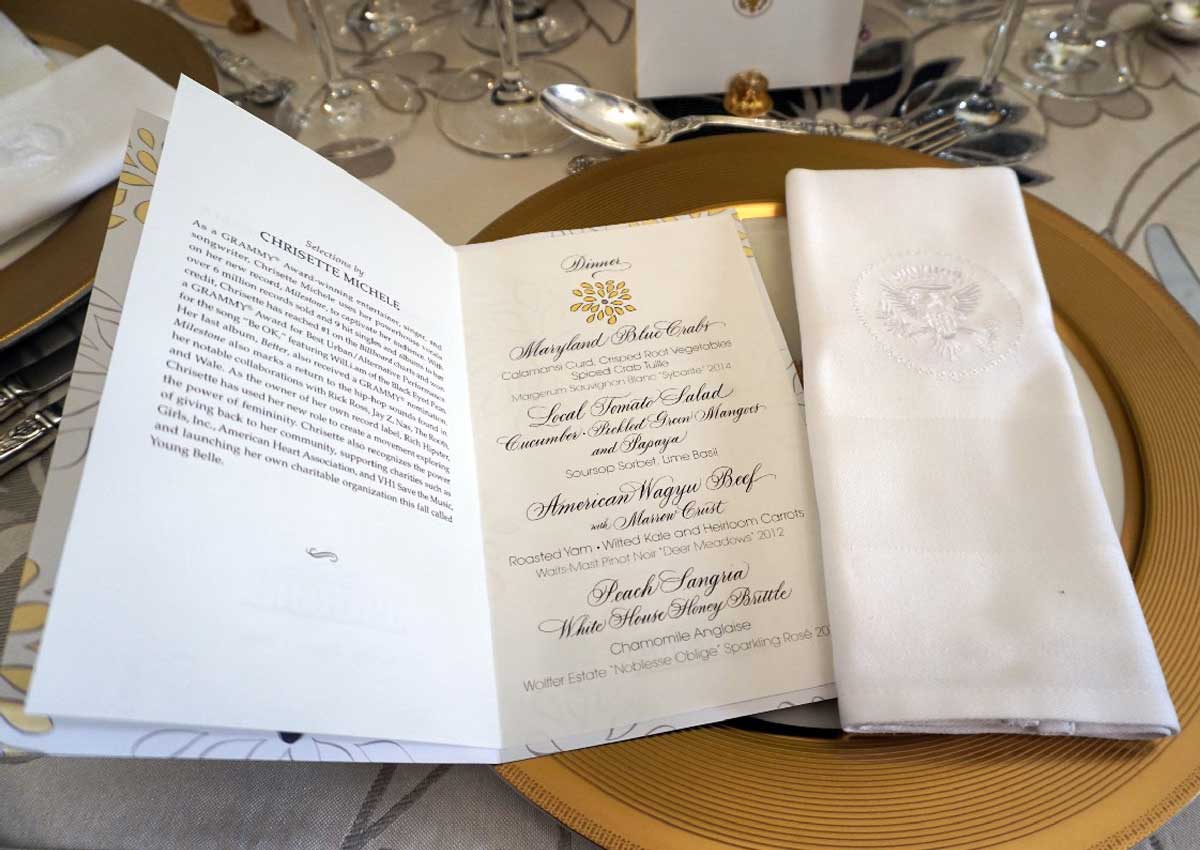 Selections by
CHRISETTE MICHELE
As a GRAMMY® Award-winning entertainer, singer, and
songwriter, Chrisette Michele uses her powerhouse vocals
on her new record, Milestone, to captivate her audience. With
over 6 million records sold and 9 hit singles and albums to her
credit, Chrisette has reached #1 on the Billboard charts and won
a GRAMMY® Award for Best Urban/Alternative Performance
for the song "Be OK," featuring Will.i.am of the Black Eyed Peas.
Her last album, Better, also received a GRAMMY® nomination.
Milestone also marks a return to the hip-hop sounds found in
her notable collaborations with Rick Ross, Jay Z, Nas, The Roots,
and Wale. As the owner of her own record label, Rich Hipster,
Chrisette has used her new role to create a movement exploring
the power of femininity. Chrisette also recognizes the power
of giving back to her community, supporting charities such as
Girls, Inc., American Heart Association, and VH1 Save the Music,
and launching her own charitable organization this fall called
Young Belle.
Dinner
Maryland Blue Crabs
Calamansi Curd, Crisped Root Vegetables
Spiced Crab Tuille
Margerum Sauvignon Blanc "Sybarite" 2014
Local Tomato Salad
Cucumber • Pickled Green Mangoes
and Papaya
Soursop Sorbet, Lime Basil
American Wagyu Beef
with Marrow Crust
Roasted Yam • Wilted Kale and Heirloom Carrots
Waits-Mast Pinot Noir "Deer Meadows" 2012
Peach Sangria
White House Honey Brittle
Chamomile Anglaise
Wölffer Estate "Noblesse Oblige" Sparkling Rosé 20